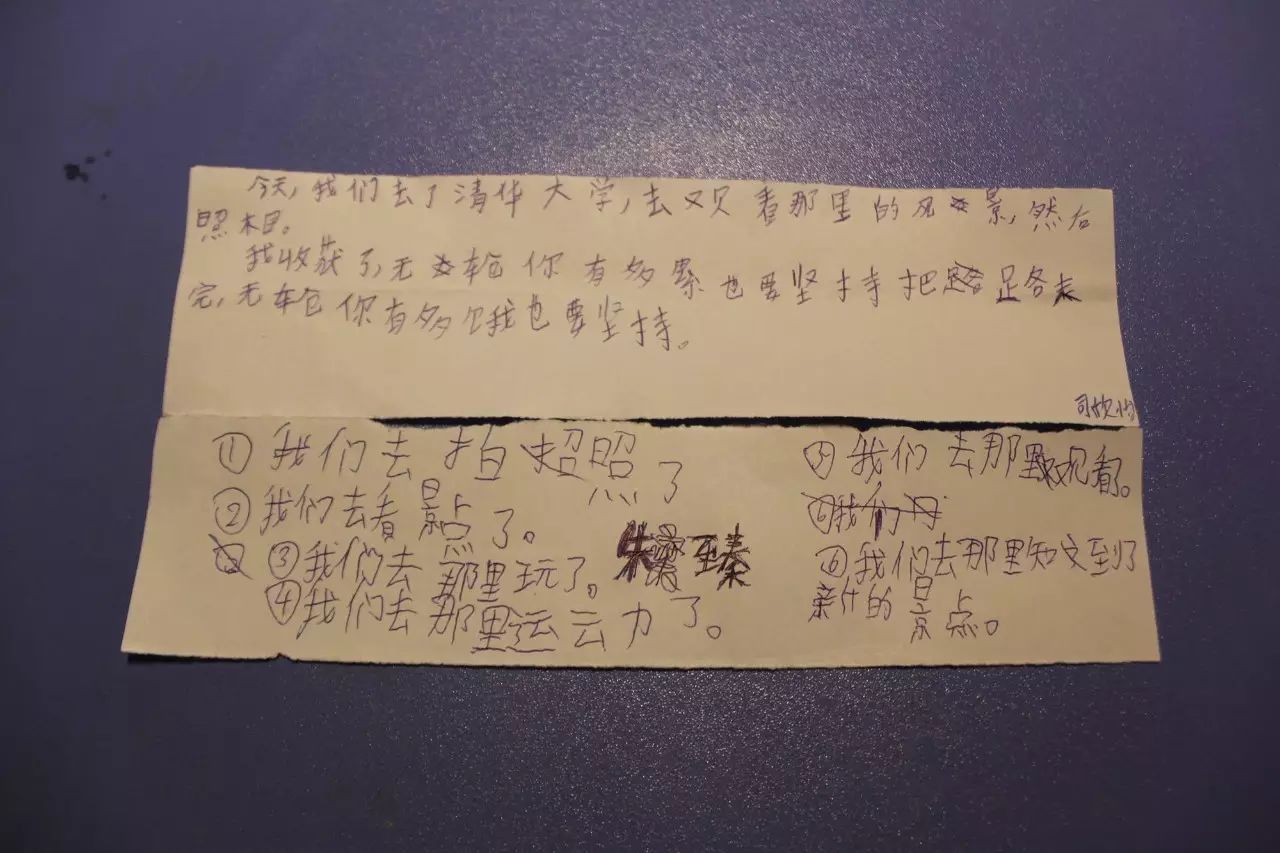 今天,我们去了清华大学,去观看那里的风景,然后
照相。
我收获了,无论你有多累也要坚持把路走
完,无论你有多饿也要坚持。
司
①我们去拍照了
②我们去看景点了。
③我们去那里玩了。
④我们去那里运动了。
朱 至臻
⑤我们去那里观看。
⑥我们去那里知文到了
亲什的景点。